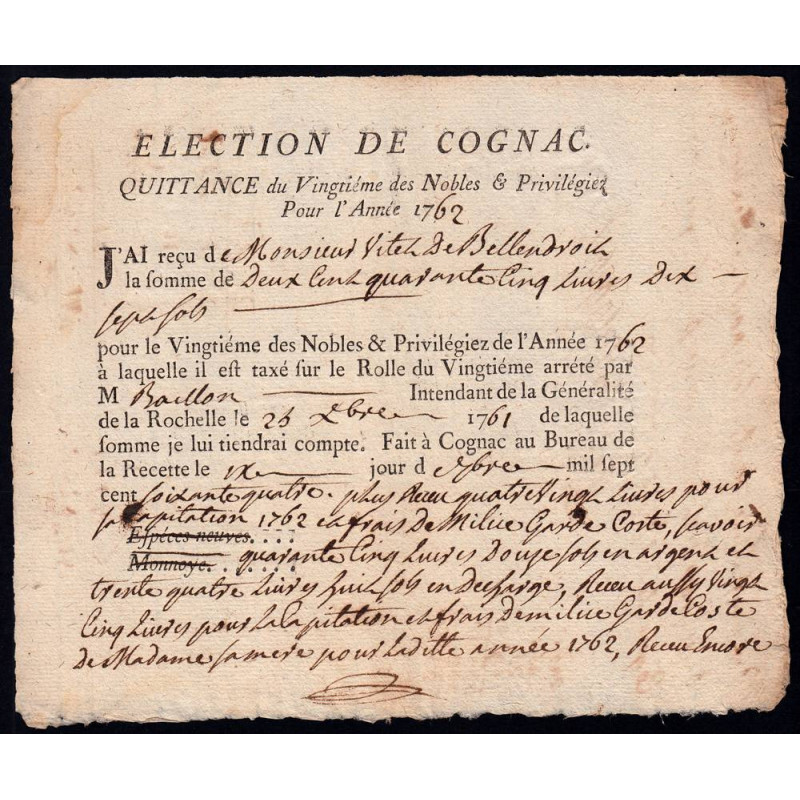 ELECTION DE COGNAC.
QUITTANCE du Vingtiéme des Nobles & Privilégiez
Pour l'Année 1762
J'AI reçu de Monsieur Vitet De Bellendroit
la somme de Deux Cent quarante Cinq Livres Dix
sept sols
pour le Vingtiéme des Nobles & Privilégiez de l'Année 1762
à laquelle il est taxé sur le Rolle du Vingtiéme arrété par
M Baillon Intendant de la Généralité
de la Rochelle le 25 Xbre 1761 de laquelle
somme je lui tiendrai compte. Fait à Cognac au Bureau de
la Recette le jour d mil sept
cent soixante quatre. plus Receu quatre Vingt Livres pour
sa Capitation 1762 et frais De Milice Garde Coste, scavoir
Espéces neuves....
quarante Cinq Livres Douze sols en argent et
Monnoye.......
trente quatre Livres huit sols en Decharge, Receu aussy Vingt
Cinq Livres pour La Capitation et frais de milice Garde Coste
de Madame sa mere pour Laditte année 1762, Receu Encore